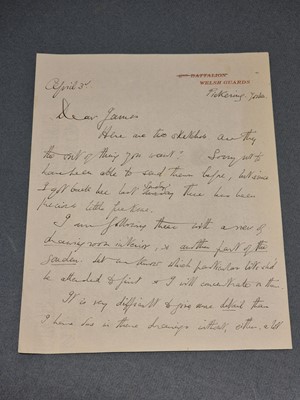 2ND BATTALION
WELSH GUARDS
April 3rd
Pickering, Yorks.
Dear James
Here are two sketches are they
the sort of thing you want? Sorry not to
have been able to send them before, but since
I got back here last Sunday there has been
precious little free time.
I am following these with a view of
drawing room interior, & another part of the
garden. Let me know which particular bits shd
be attended to first & I will concentrate on them.
It is very difficult to give more detail than
I have done in these drawings without, either a lot